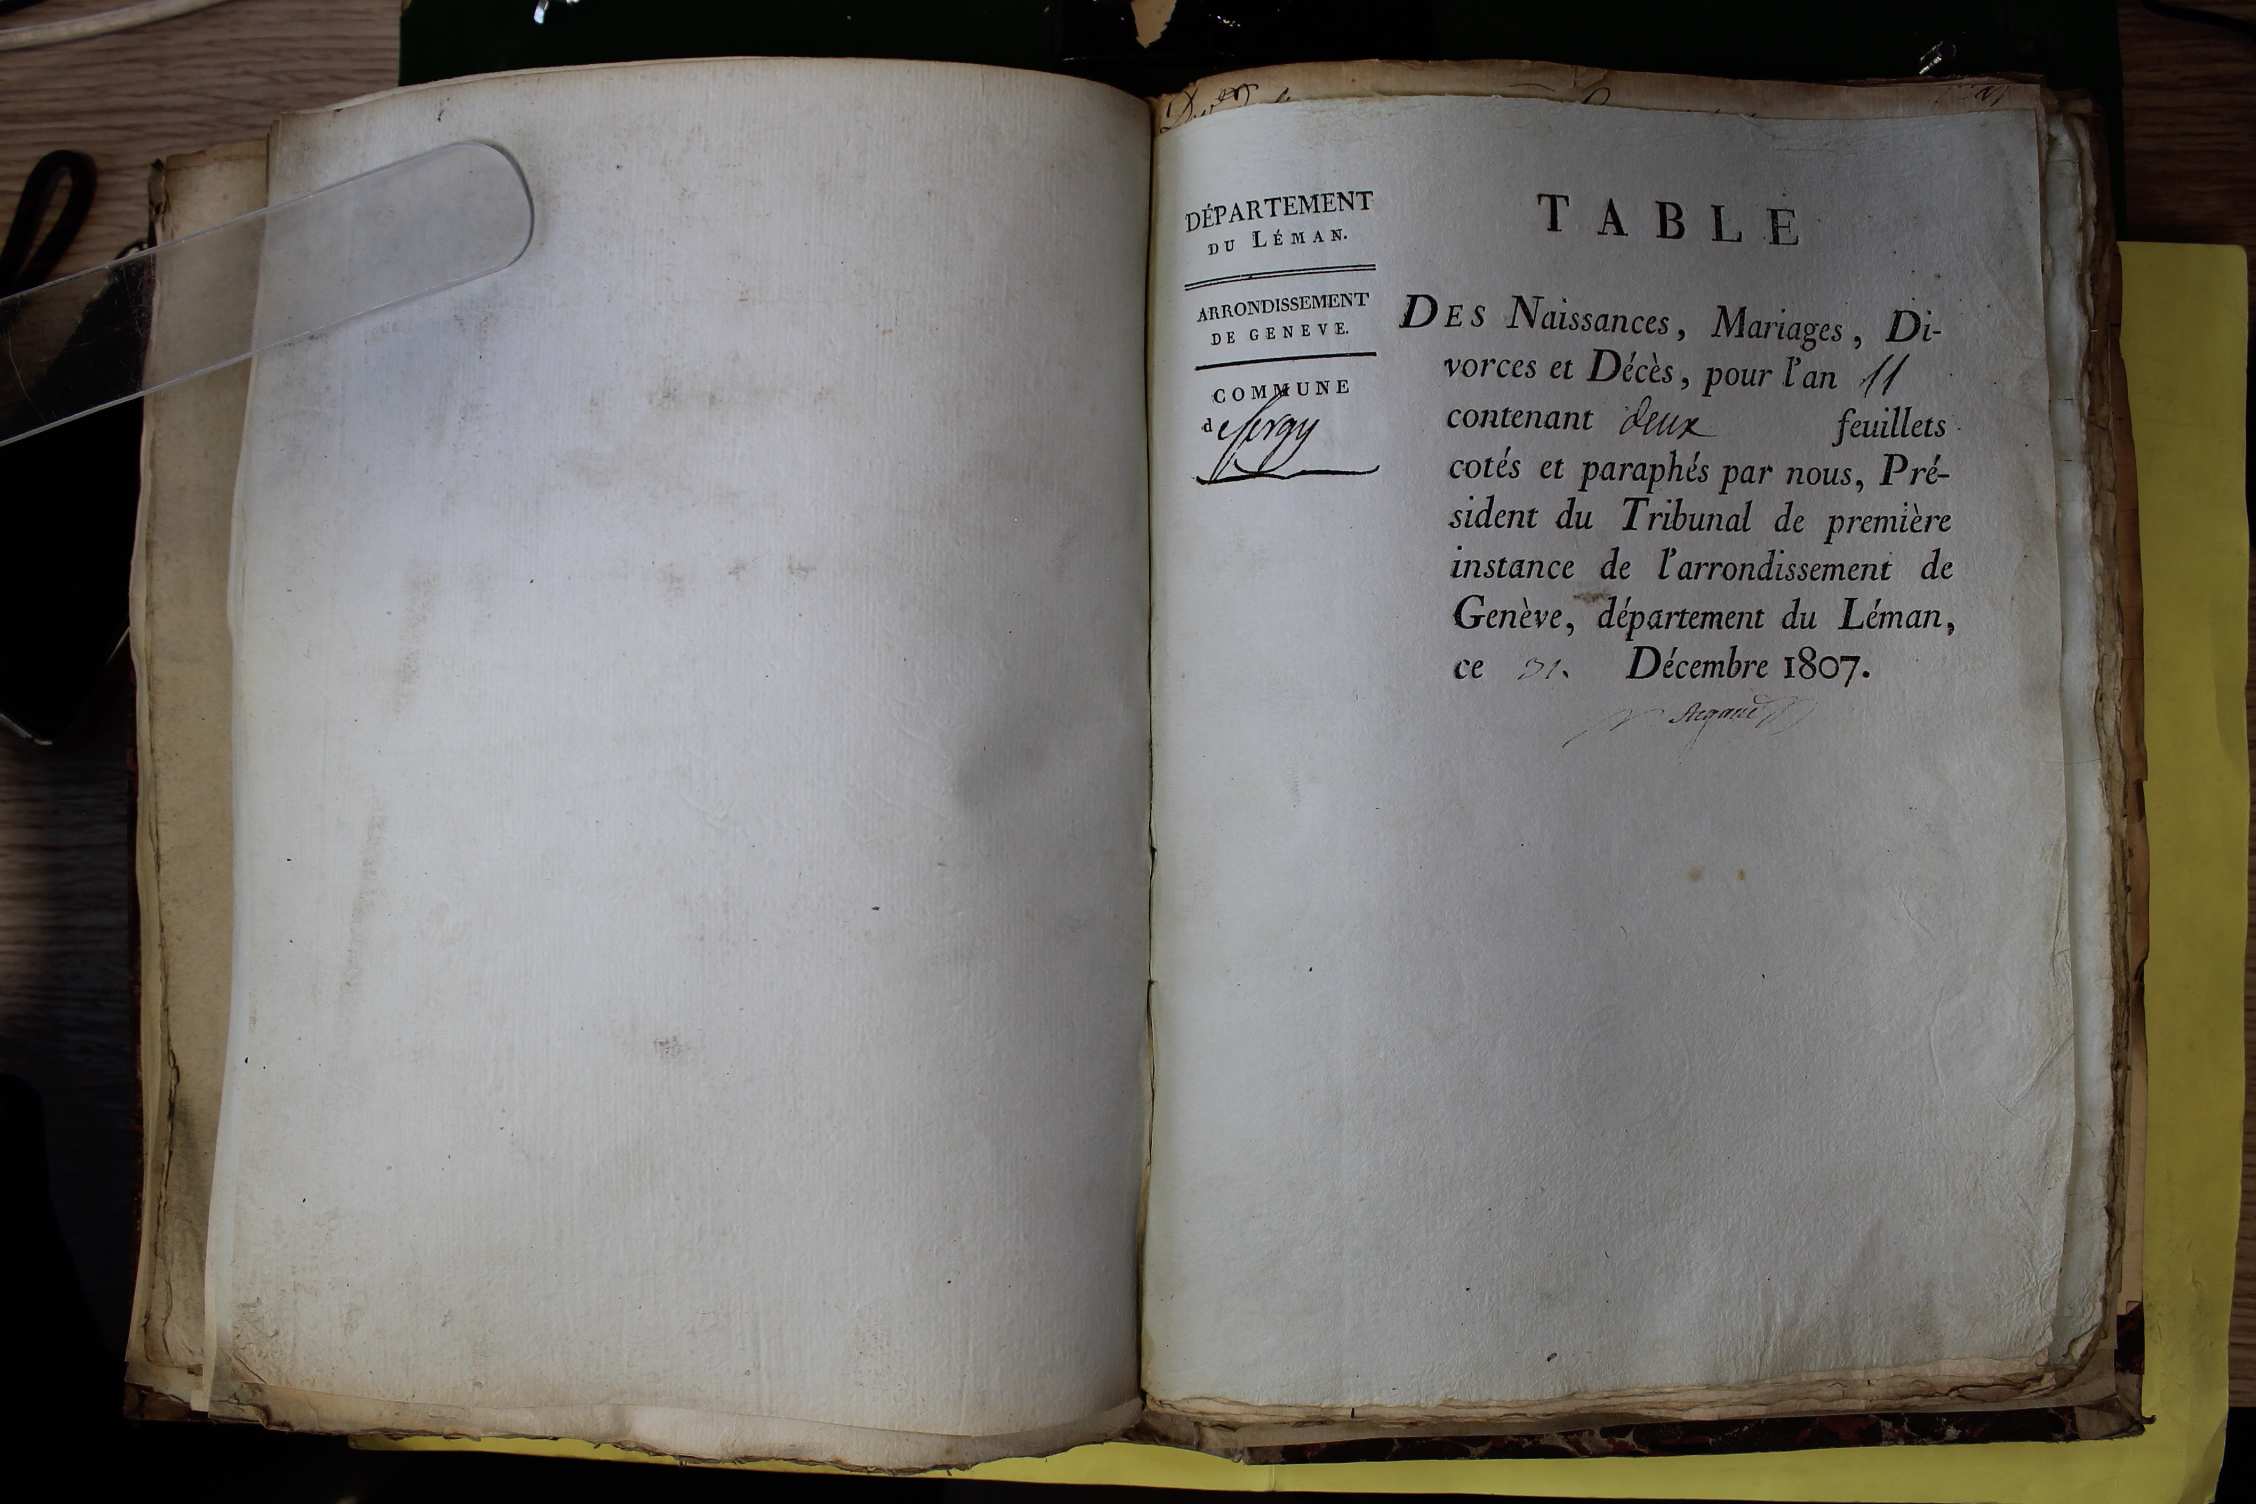 DÉPARTEMENT
DU LÉMAN.
ARRONDISSEMENT
DE GENEVE.
COMMUNE
de Sergy
TABLE
DES Naissances, Mariages, Di-
vorces et Décès, pour l'an 11
contenant deux feuillets
cotés et paraphés par nous, Pré-
sident du Tribunal de première
instance de l'arrondissement de
Genève, département du Léman,
ce 31. Décembre 1807.
Argand